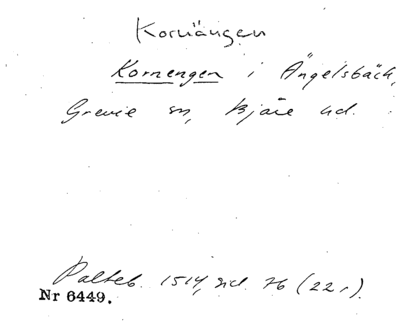 Kornängen
Kornengen i Ängelsbäck,
Grevie sn, Bjäre hd.
Palteb. 1514, sid. 76 (22r).
Nr 6449.